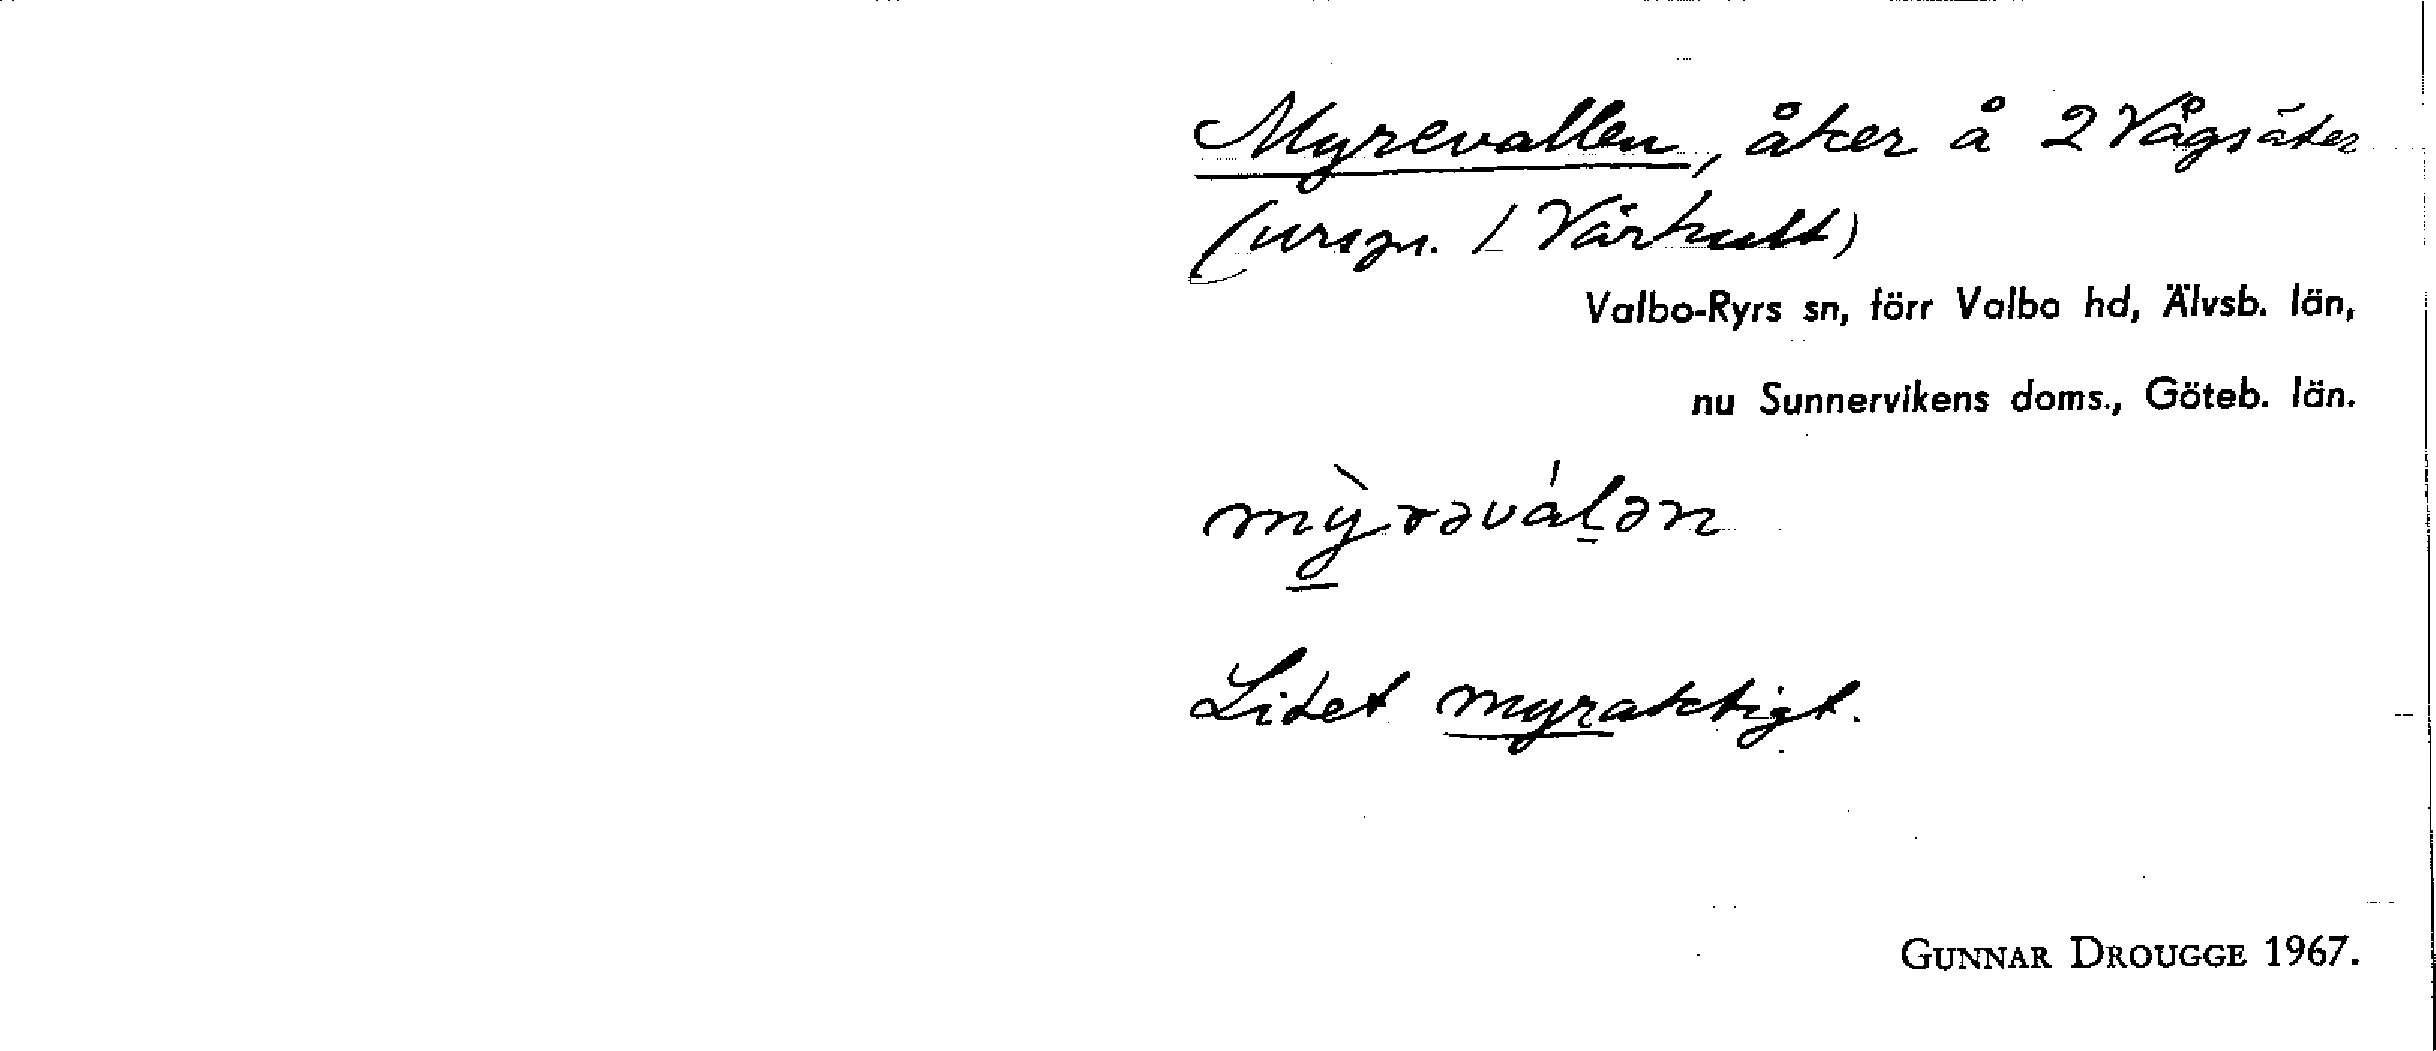 Myrevallen, åker å 2 Vågsäter
(urspr. 1 Värhult)
Valbo-Ryrs sn, förr Valbo hd, Älvsb. län,
nu Sunnervikens doms., Göteb. län.
mỳrəválən
Litet myraktigt.
GUNNAR DROUGGE 1967.